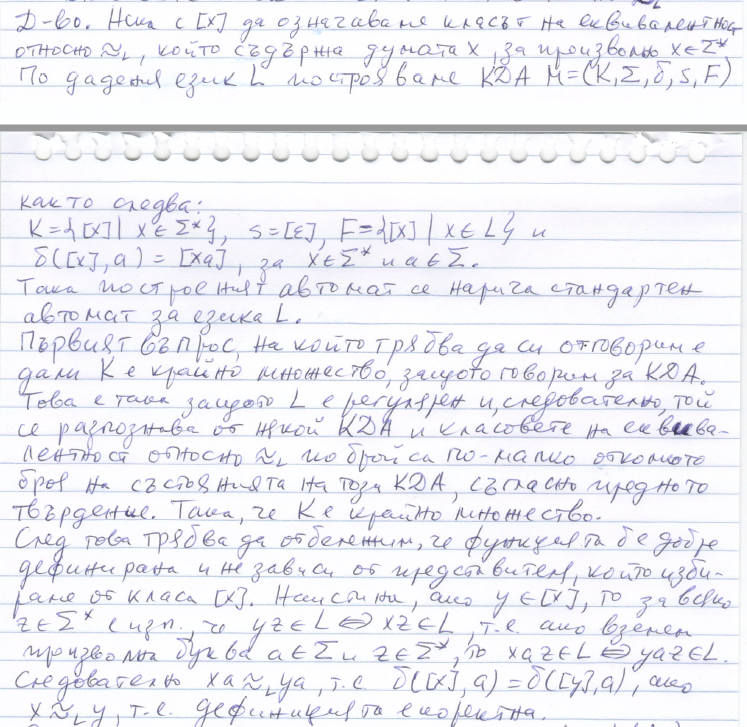 Д-во. Нека с [x] да означаваме класът на еквивалентност
относно ≈_L, който съдържа думата x, за произволно x∈Σ*
По дадения език L построяваме КДА M=(K,Σ,δ,s,F)
както следва:
K={[x] | x∈Σ*}, s=[ε], F={[x] | x∈L} и
δ([x],a) = [xa], за x∈Σ* и a∈Σ.
Така построеният автомат се нарича стандартен
автомат за езика L.
Първият въпрос, на който трябва да си отговорим е
дали K е крайно множество, защото говорим за КДА.
Това е така защото L е регулярен и, следователно, той
се разпознава от някой КДА и класовете на еквива-
лентност относно ≈_L по брой са по-малко отколкото
броя на състоянията на този КДА, съгласно предното
твърдение. Така, че K е крайно множество.
След това трябва да отбележим, че функцията δ е добре
дефинирана и не зависи от представителя, който изби-
раме от класа [x]. Наистина, ако y∈[x], то за всяко
z∈Σ* е изп., че yz∈L ⇔ xz∈L, т.е. ако вземем
произволна буква a∈Σ и z∈Σ*, то xaz∈L ⇔ yaz∈L.
Следователно xa≈_L ya, т.е. δ([x],a) = δ([y],a), ако
x≈_L y, т.е. дефиницията е коректна.